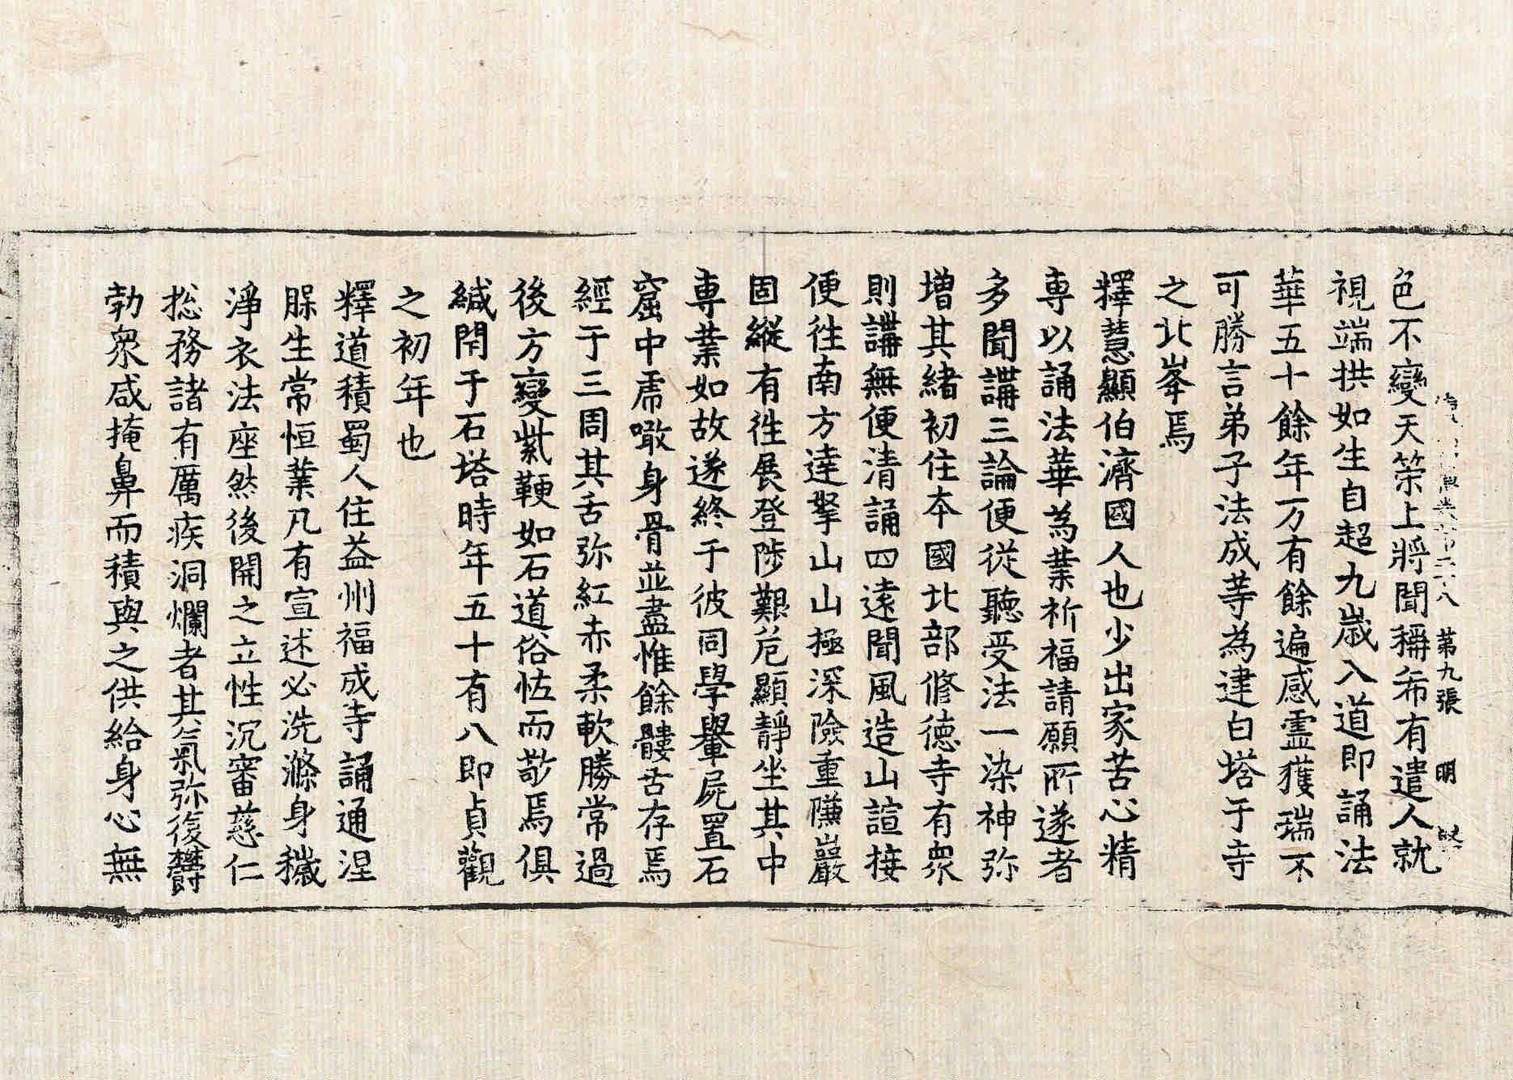 第二十八 第九張 明
色不變天策上將聞稱希有遣人就
視端拱如生自超九歲入道即誦法
華五十餘年万有餘遍感霊獲瑞不
可勝言弟子法成等為建白塔于寺
之北峯焉
釋慧顯伯濟國人也少出家苦心精
專以誦法華為業祈福請願所遂者
多聞講三論便從聽受法一染神弥
增其緒初住本國北部修德寺有衆
則講無便清誦四遠聞風造山諠接
便往南方達拏山山極深險重隒巖
固縱有往展登陟艱危顯靜坐其中
專業如故遂終于彼同學轝屍置石
窟中虎噉身骨並盡惟餘髏舌存焉
經于三周其舌弥紅赤柔軟勝常過
後方變紫鞕如石道俗恠而敬焉俱
緘閇于石塔時年五十有八即貞觀
之初年也
釋道積蜀人住益州福成寺誦通涅
䏶生常恒業凡有宣述必洗滌身穢
淨衣法座然後開之立性沉審慈仁
捴務諸有厲疾洞爛者其氣弥復欝
勃衆咸掩鼻而積與之供給身心無